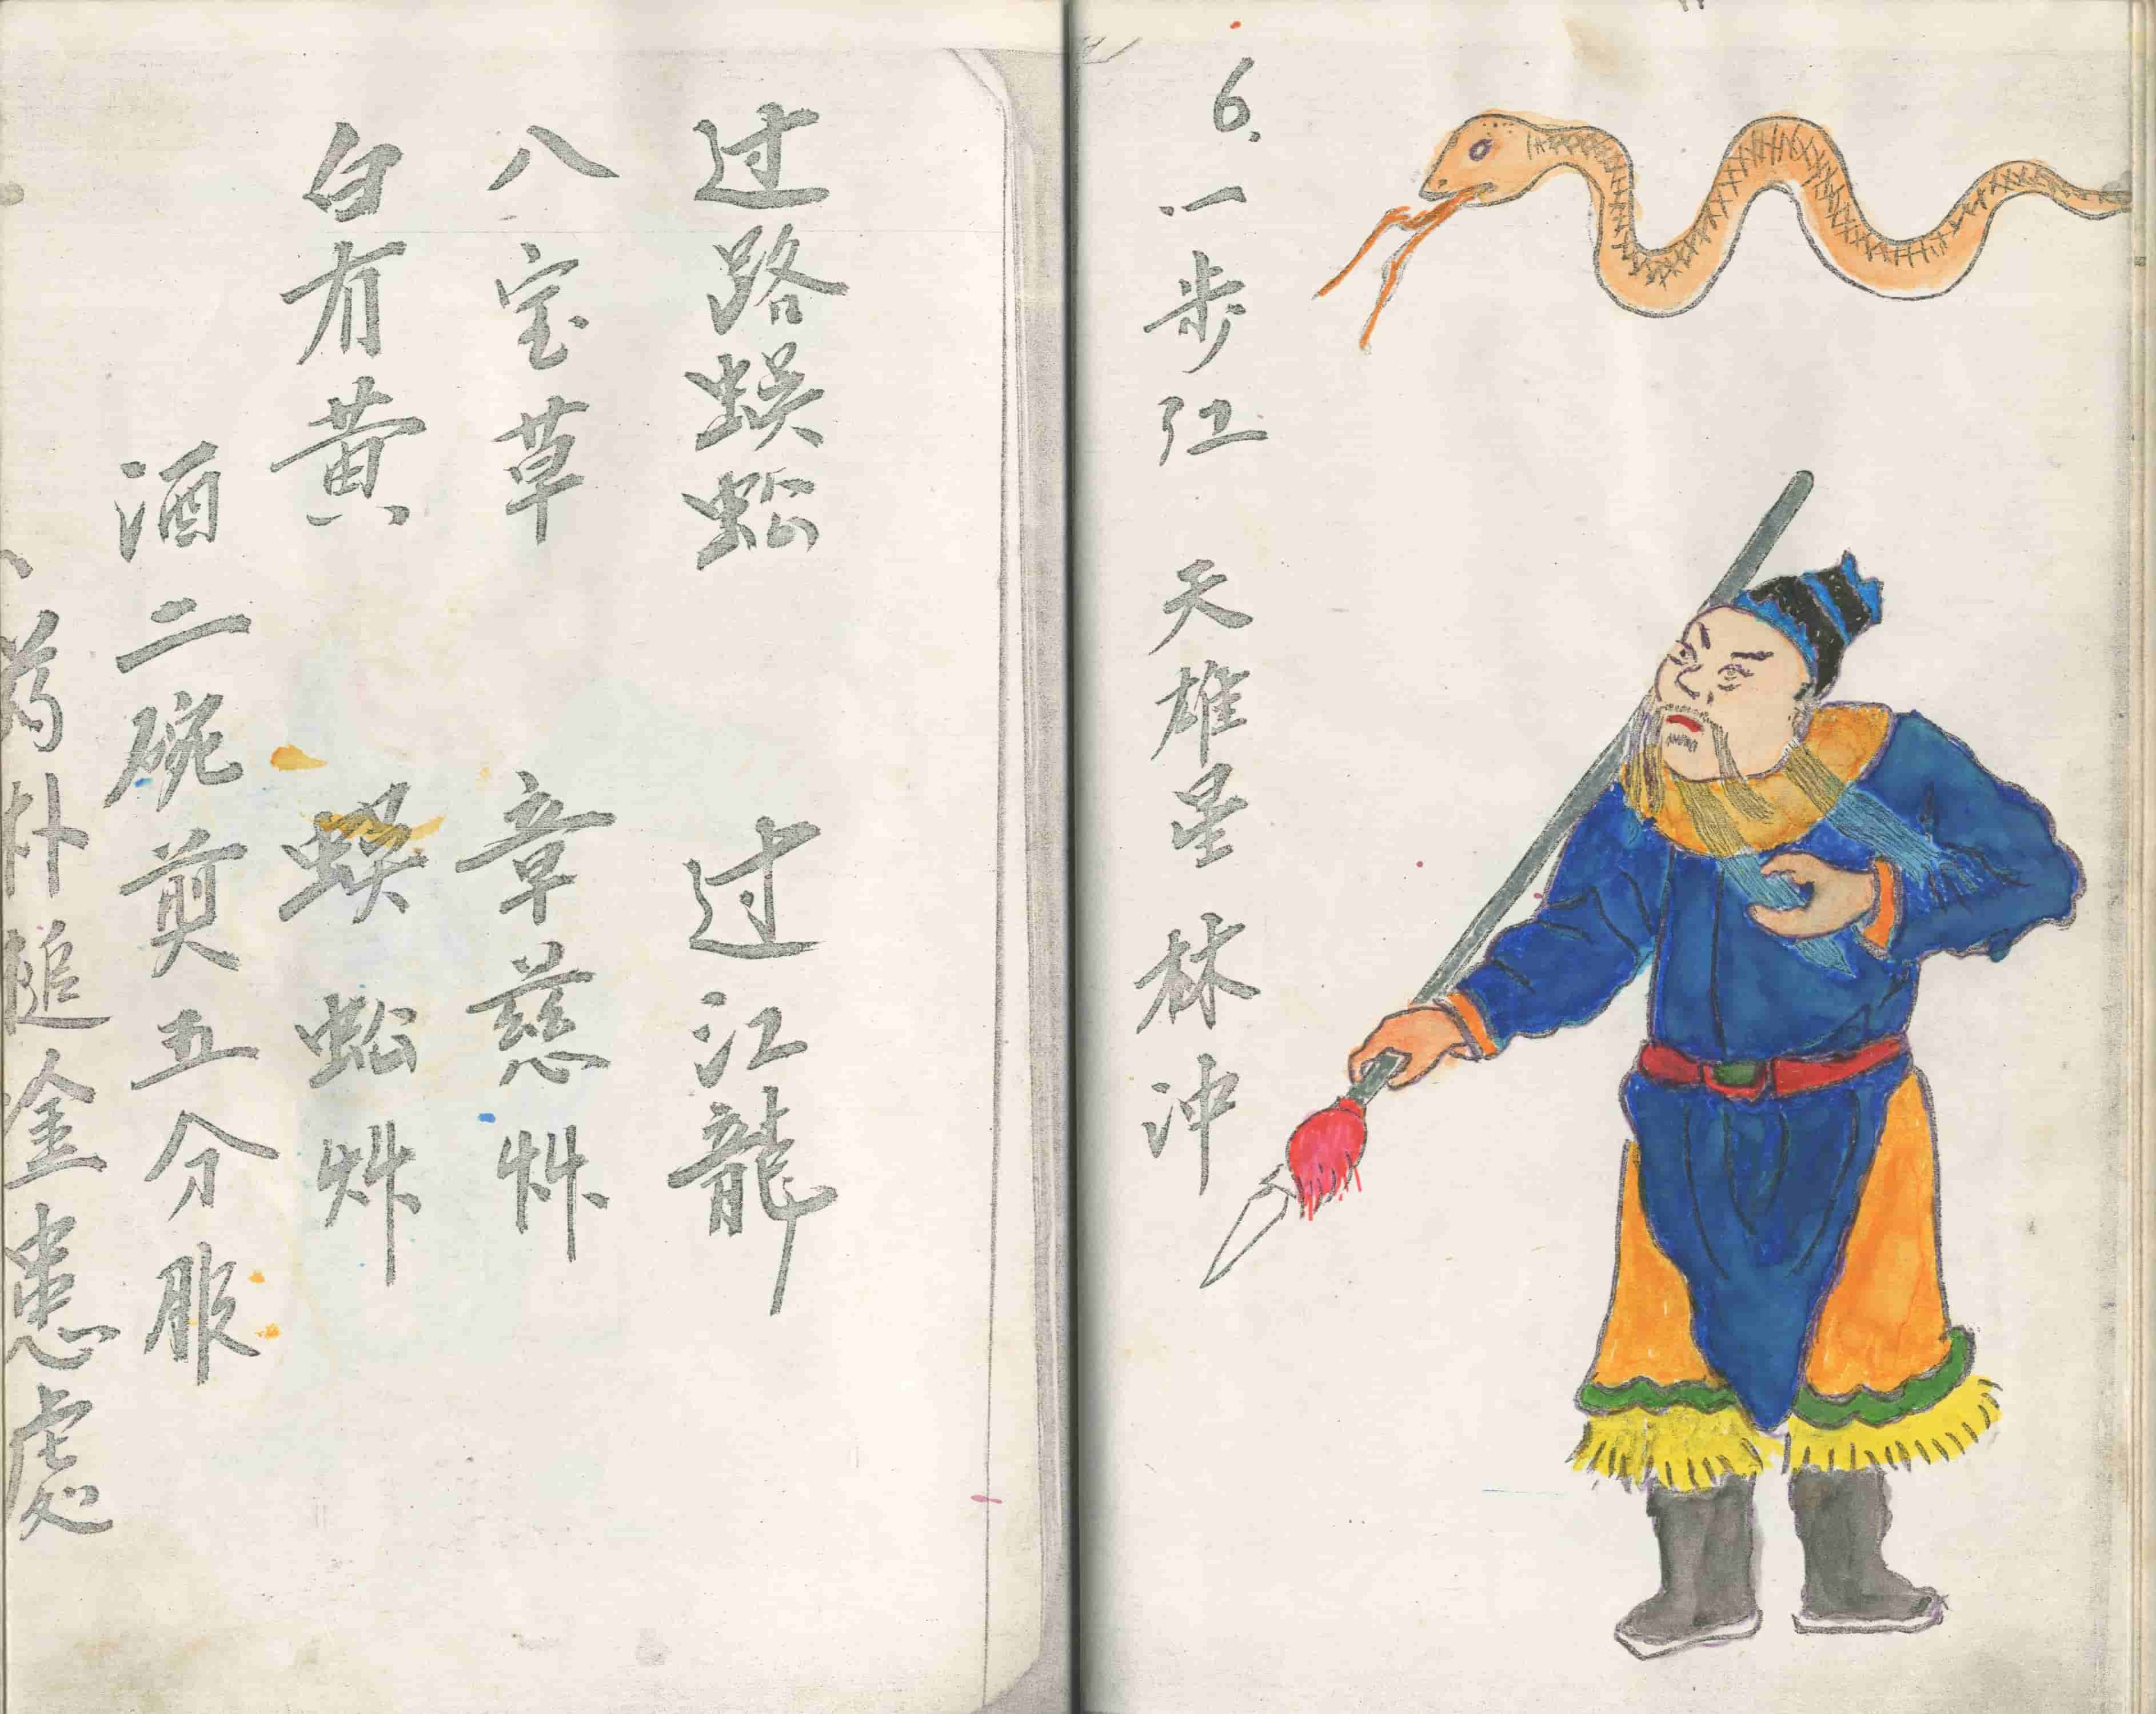 6.一步红 天雄星 林冲
过路蜈蚣 过江龍
八宝草 章慈艸
白有黄 蜈蚣艸
酒二碗煎五分服
朴追金患處